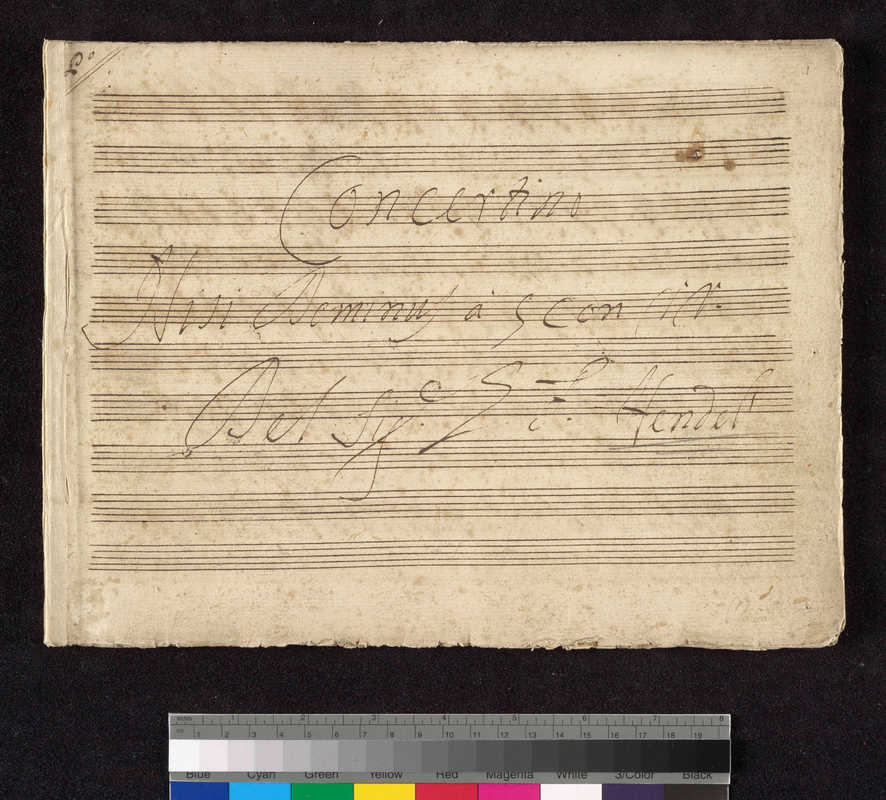 Concertino
Nisi Dominus à 5 con
Del Sig.e Hendel
inches 1 2 3 4 5 6 7 8
cm 1 2 3 4 5 6 7 8 9 10 11 12 13 14 15 16 17 18 19
Blue Cyan Green Yellow Red Magenta White 3/Color Black